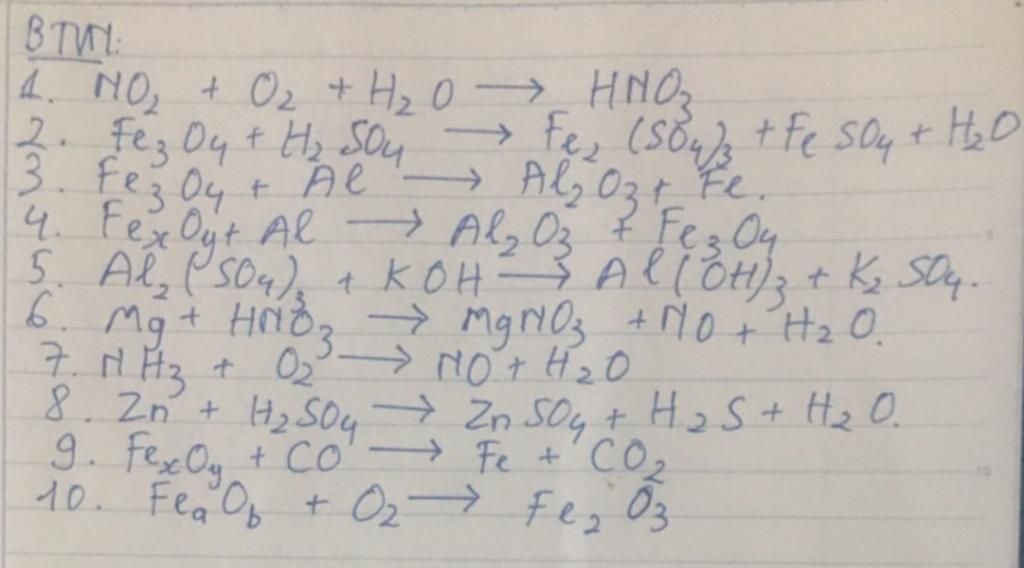 BTVN:
1. NO₂ + O₂ + H₂O → HNO₃
2. Fe₃O₄ + H₂SO₄ → Fe₂(SO₄)₃ + FeSO₄ + H₂O
3. Fe₃O₄ + Al → Al₂O₃ + Fe.
4. FeₓOy + Al → Al₂O₃ + Fe₃O₄
5. Al₂(SO₄)₃ + KOH → Al(OH)₃ + K₂SO₄.
6. Mg + HNO₃ → MgNO₃ + NO + H₂O.
7. NH₃ + O₂ → NO + H₂O
8. Zn + H₂SO₄ → ZnSO₄ + H₂S + H₂O.
9. FeₓOy + CO → Fe + CO₂
10. FeₐOb + O₂ → Fe₂O₃